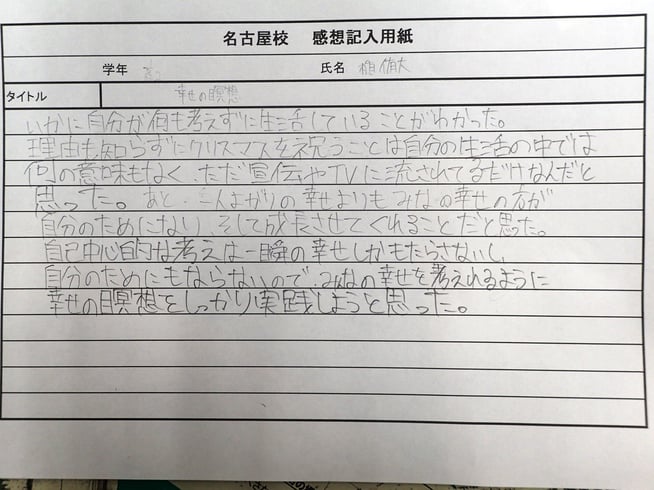 名古屋校 感想記入用紙
学年 氏名
タイトル 幸せの瞑想
いかに自分が何も考えずに生活していることがわかった。
理由も知らずにクリスマスを祝うことは自分の生活の中では
何の意味もなく ただ宣伝やTVに流されてるだけなんだと
思った。あと、一人よがりの幸せよりもみなの幸せの方が
自分のためになり、そして成長させてくれることだと思った。
自己中心的な考えは一瞬の幸せしかもたらさないし、
自分のためにもならないので、みなの幸せを考えれるように
幸せの瞑想をしっかり実践しようと思った。